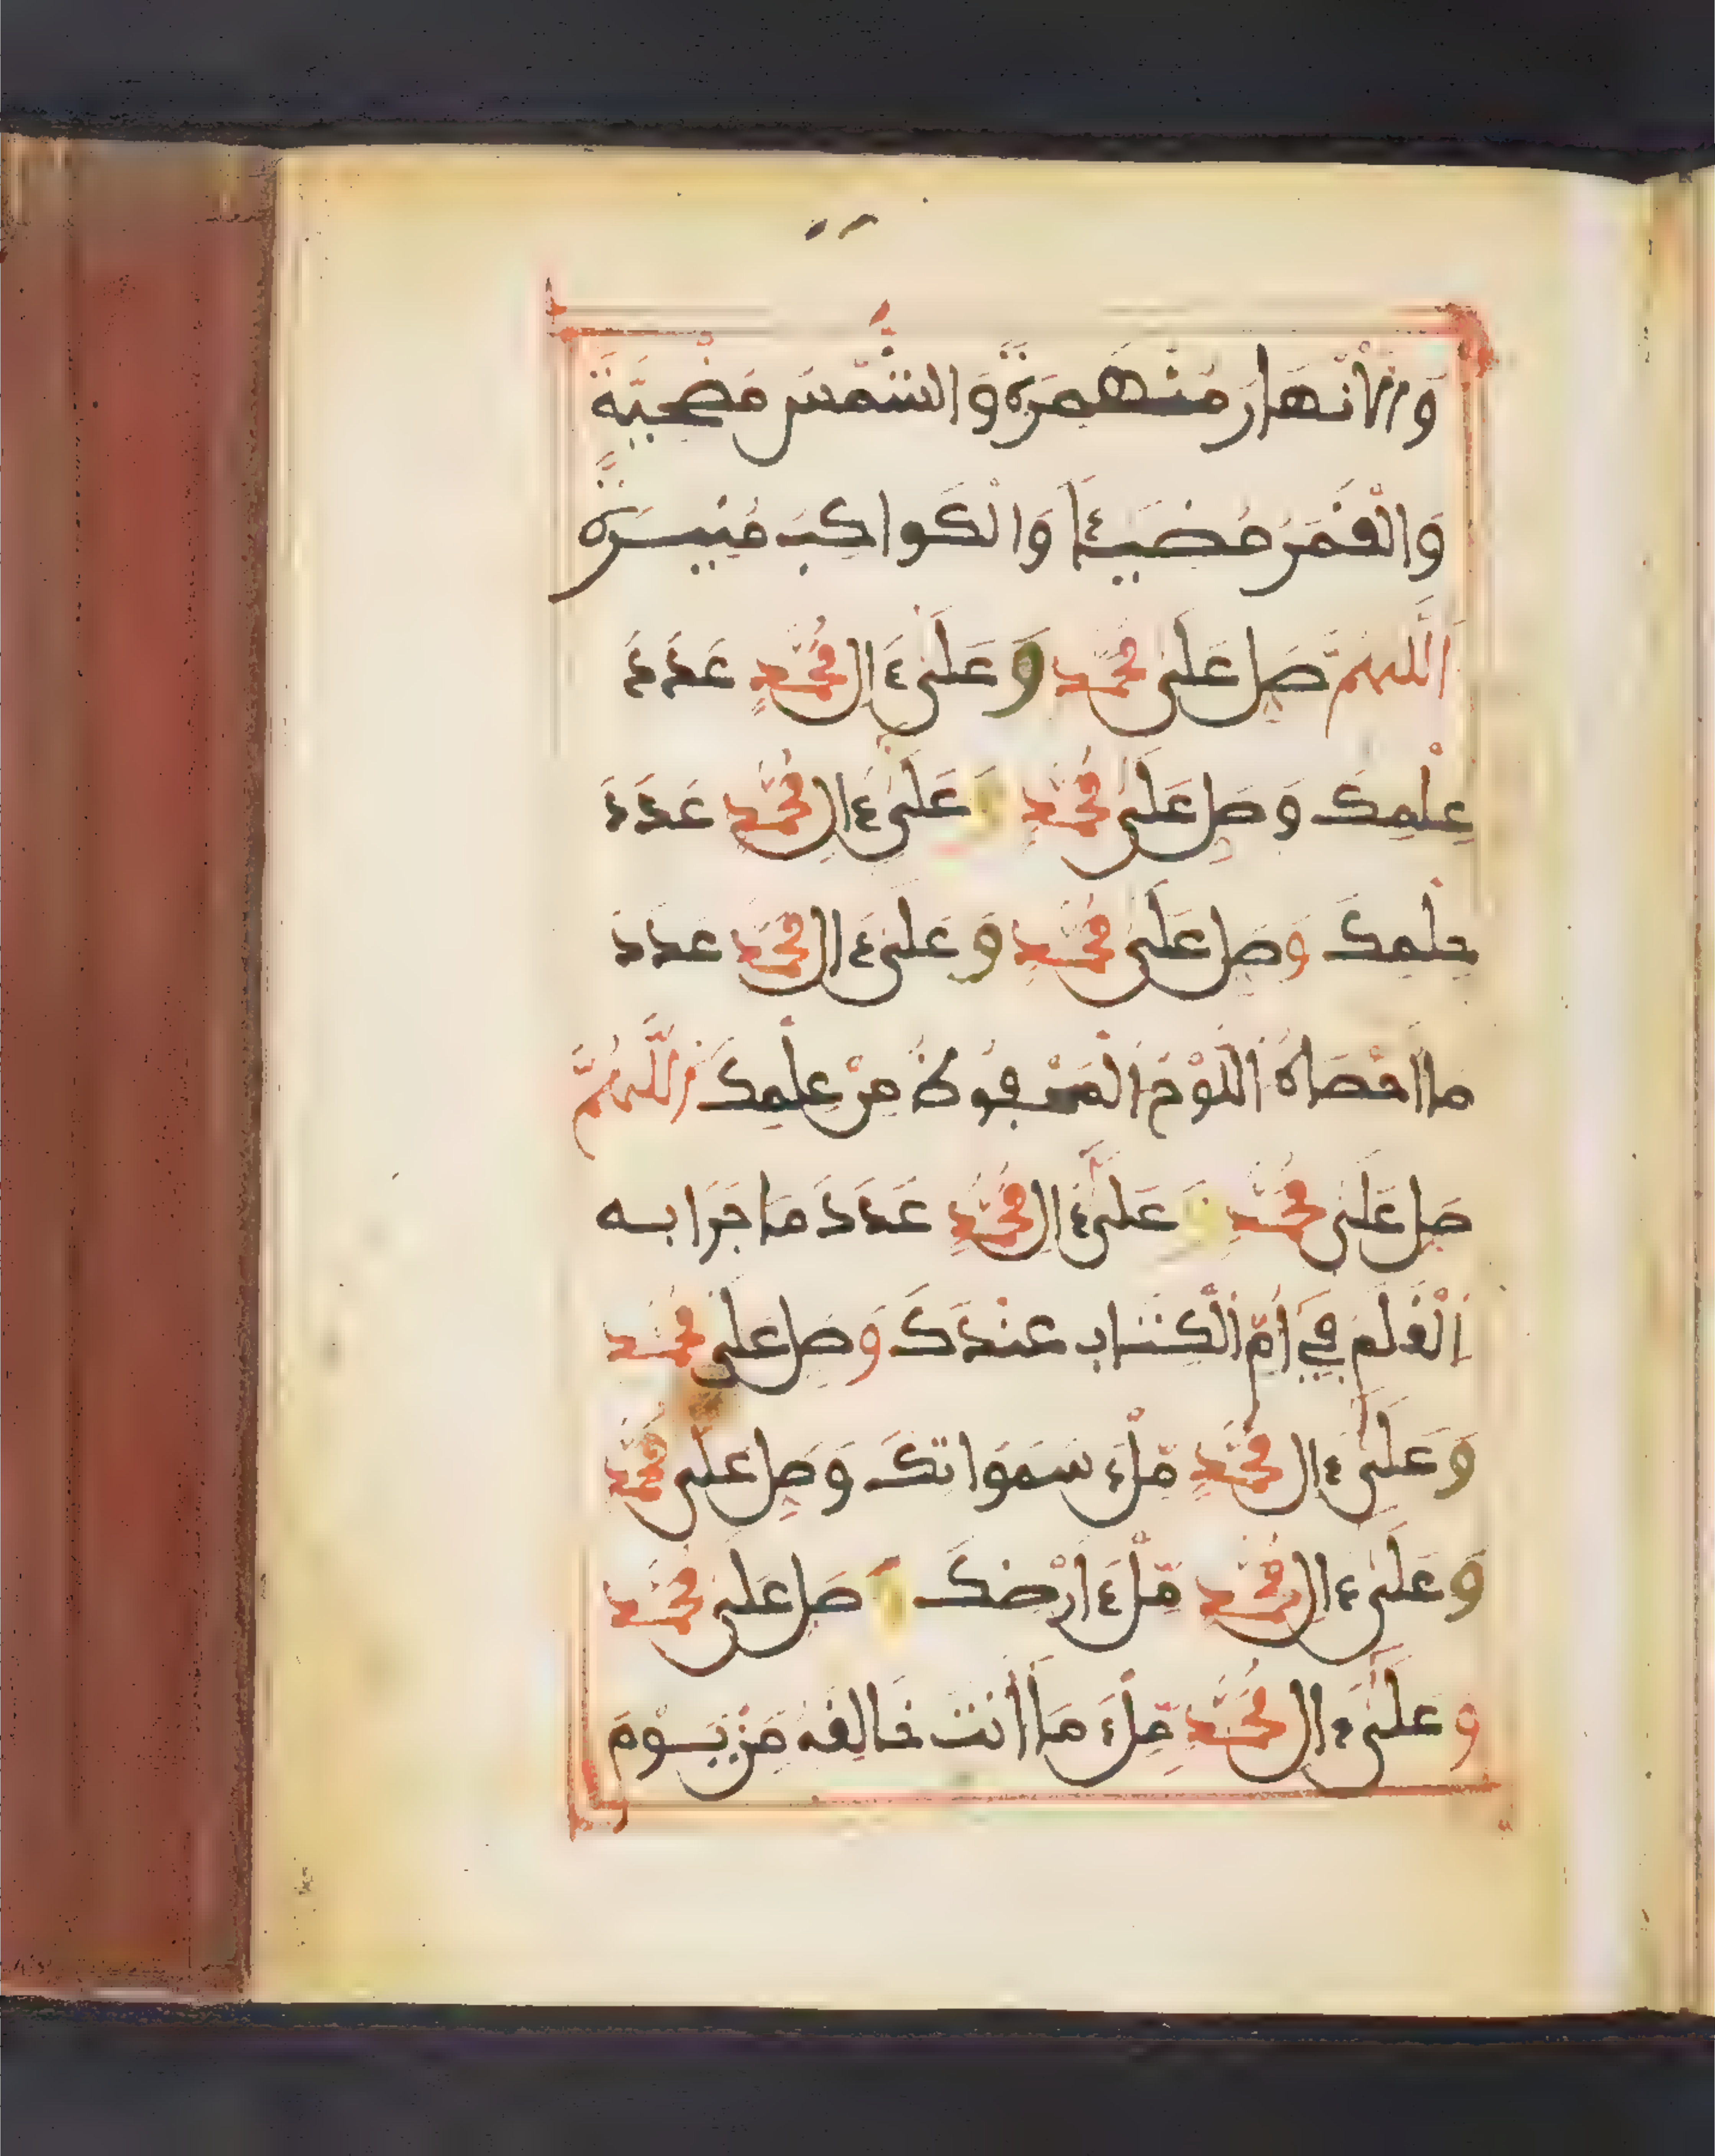 وَالْأَنْهَارَ مُنْهَمِرَةً وَالشَّمْسَ مُضْحِيَّةً
وَالْقَمَرُ مُضِيئًا وَالْكَوَاكِبَ مُنِيرَةً
اَللَّهُمَّ صَلِّ عَلَى مُحَمَّدٍ وَعَلَى ءَالِ مُحَمَّدٍ عَدَدَ
عِلْمِكَ وَصَلِّ عَلَى مُحَمَّدٍ وَعَلَى ءَالِ مُحَمَّدٍ عَدَدَ
حِلْمِكَ وَصَلِّ عَلَى مُحَمَّدٍ وَعَلَى ءَالِ مُحَمَّدٍ عَدَدَ
مَا أَحْصَاهُ اَللَّوْحُ اَلْمَحْفُوظُ مِنْ عِلْمِكَ اَللَّهُمَّ
صَلِّ عَلَى مُحَمَّدٍ وَعَلَى ءَالِ مُحَمَّدٍ عَدَدَ مَا جَرَا بِهِ
اَلْقَلَمُ فِي أُمِّ الْكِتَابِ عِنْدَكَ وَصَلِّ عَلَى مُحَمَّدٍ
وَعَلَى ءَالِ مُحَمَّدٍ مِّلْءَ سَمَوَاتِكَ وَصَلِّ عَلَى مُحَمَّدٍ
وَعَلَى ءَالِ مُحَمَّدٍ مِّلْءَ أَرْضِكَ وَصَلِّ عَلَى مُحَمَّدٍ
وَعَلَى ءَالِ مُحَمَّدٍ مِّلْءَ مَا أَنْتَ خَالِقُهُ مِنْ يَوْمَ